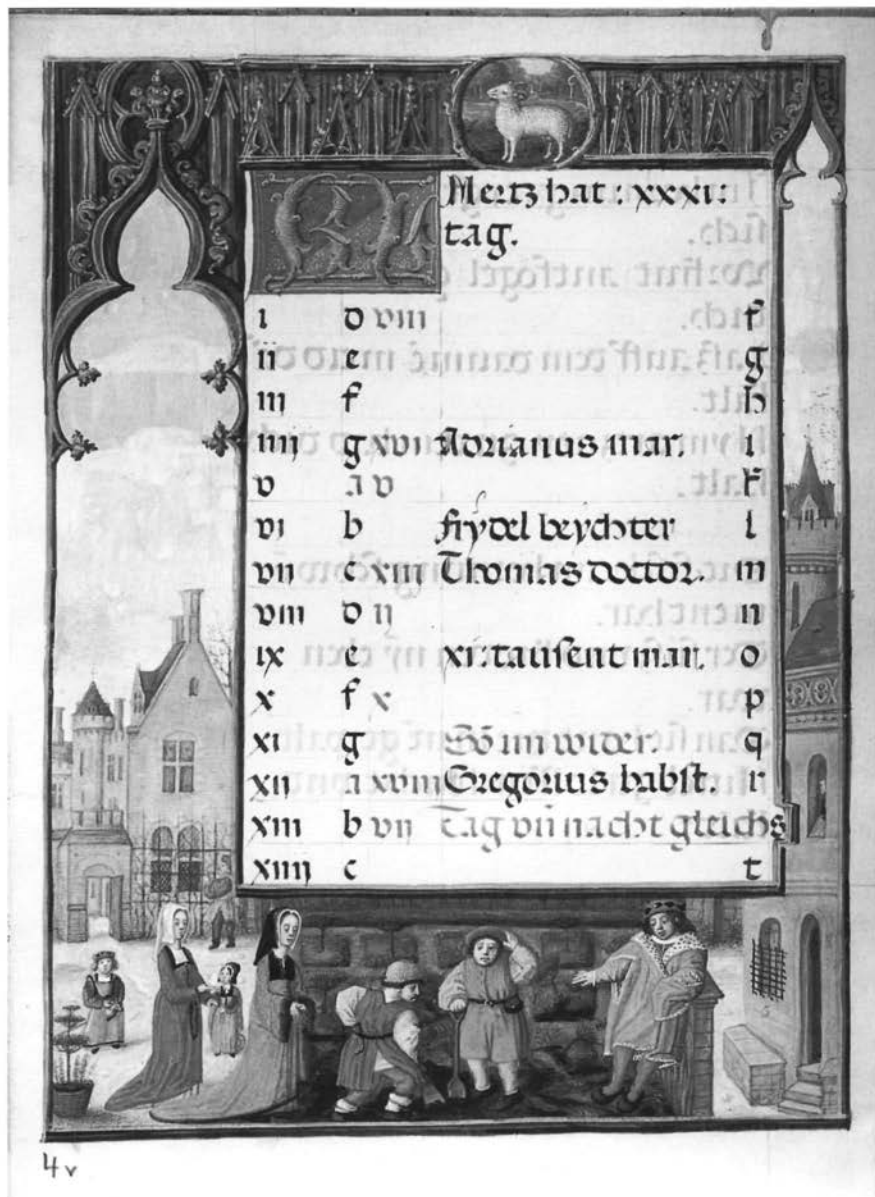 Mertz hat : xxxi :
tag.
i d viii f
ii e g
iii f h
iiii g xvi Adrianus mar. i
v a v k
vi b frydel beychter l
vii c xiii Thomas doctor. m
viii d ij n
ix e xi: tausent mar. o
x f x p
xi g Sō im wider. q
xii a xviii Gregorius babst. r
xiii b vii Tag vñ nacht gleich s
xiiii c t
4v